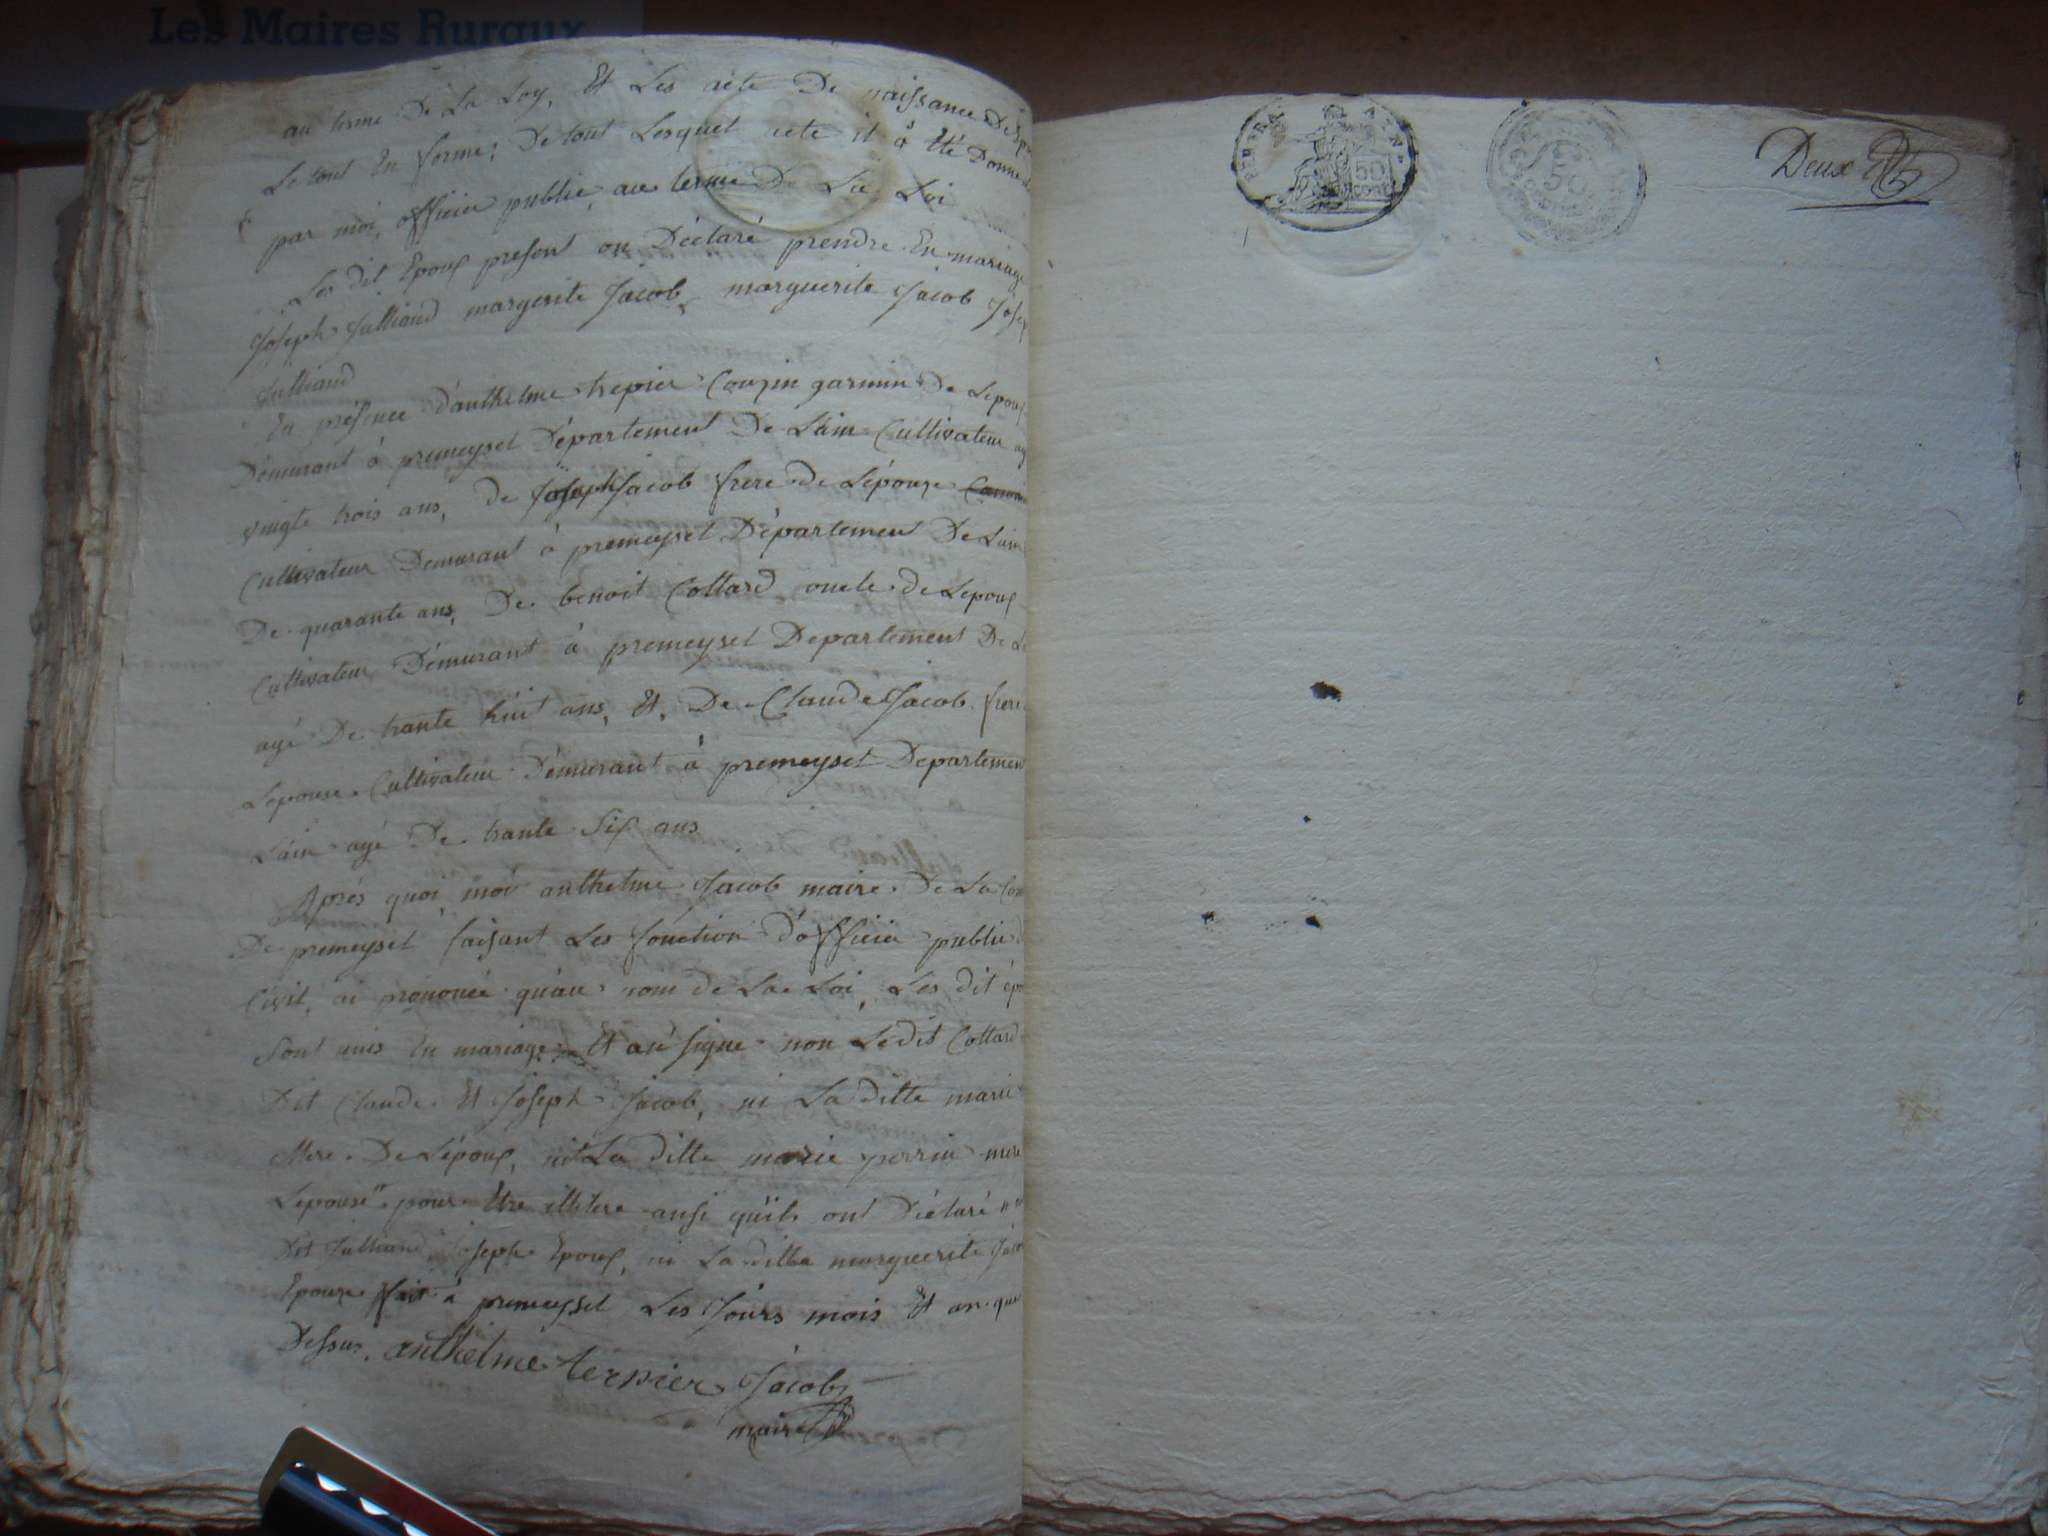 Les Maires Ruraux
au terme De La Loy, Et Les acte De naissance Des
Le tout En forme; De tout Lesquel acte il à été Donné
par moi, officier public, au terme De La Loi
Les dit Epoux present on Déclaré prendre En mariage
Joseph Julliand margerite Jacob, marguerite Jacob Josep
Julliand
En présence d'anthelme trepier Couzin garmin De Lepoux
Démurant à premeysel Département De L'ain Cultivateur ag
vingte trois ans, de Joseph Jacob frere de Lépouze
Cultivateur Demurant à premeysel Département De Lain
De quarante ans, De benoit Collard oncle de Lepoux
Cultivateur Démurant à premeysel Departement De L
agé De trante huit ans, Et De Claude Jacob frere
Lepouse Cultivateur Démurant à premeysel Departemen
Lain agé De trante Six ans
Aprés quoi, moi anthelme Jacob maire De La Com
De premeysel faisant Les fonction D'officier public
Civil, ai prononcé qu'au nom de La Loi, Les dit épo
Sont unis En mariage Et ai Signe non Le dit Collard
Dit Claude Et Joseph Jacob, ni La ditte marie
Mere De Lépoux, nit La ditte marie perrin mere
Lépouse" pour Etre illitere ansi quils ont Déclaré " "
Dit Julliand Joseph Epoux, ni La ditta marguerite Jaco
Epouze fait à premeysel Les Jours mois Et an que
Dessus. anthelme terpier Jacob
maire
50
CENT
50
Deux